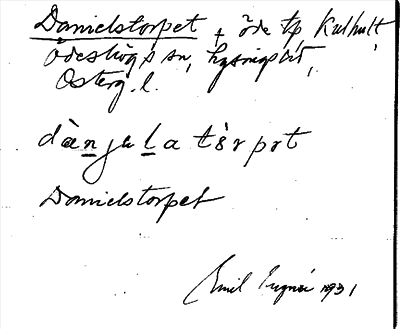 Danielstorpet + öde tp, Kulhult,
Ödeshögs sn, Lysings hd,
Österg. l.
dànjəla tòrpət
Danielstorpet
Emil 1931